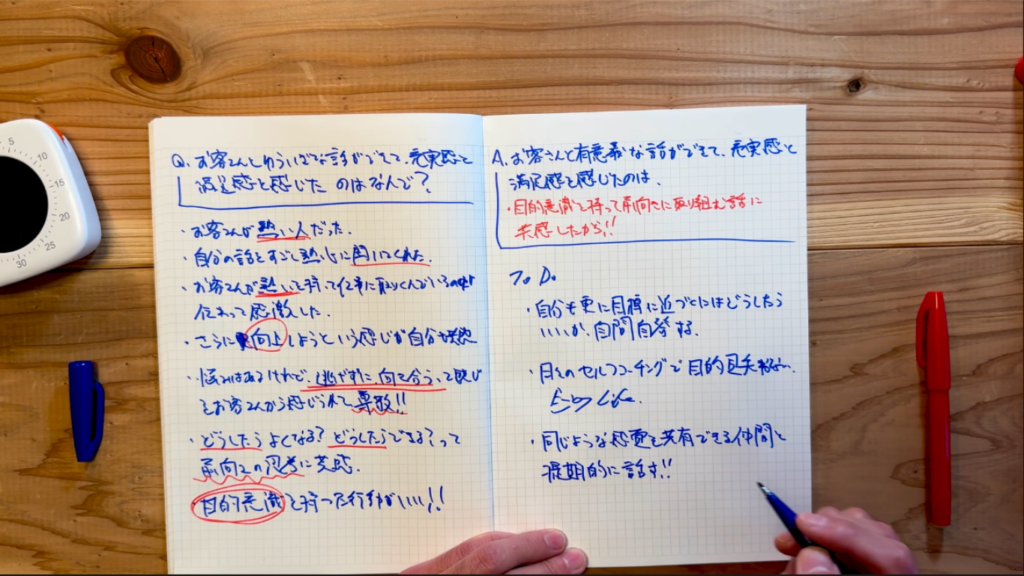 Q. お客さんとゆういぎな話ができて、充実感と
満足感を感じた のはなんで?
・お客さんが熱い人だった.
・自分の話をすごく熱心に聞いてくれた.
・お客さんが熱い を持って仕事に取りくんでいる
伝わって感激した.
・さらに向上しようという感じが自分も
・悩みはあるけれど、逃げずに向き合う. って感じ
をお客さんから感じられて尊敬!!
・どうしたらよくなる? どうしたらできる? って
前向きの思考に共感.
目的意識を持った行動がいい!!
A. お客さんと有意義な話ができて、充実感と
満足感を感じたのは、
・目的意識を持って前向きに取り組む話に
共感したから!!
To Do
・自分も更に目標に近づくにはどうしたら
いいか、自問自答する.
・日々のセルフコーチングで目的
Enjoy Life.
・同じような感覚を共有できる仲間と
定期的に話す!!
5
10
15
20
25
30